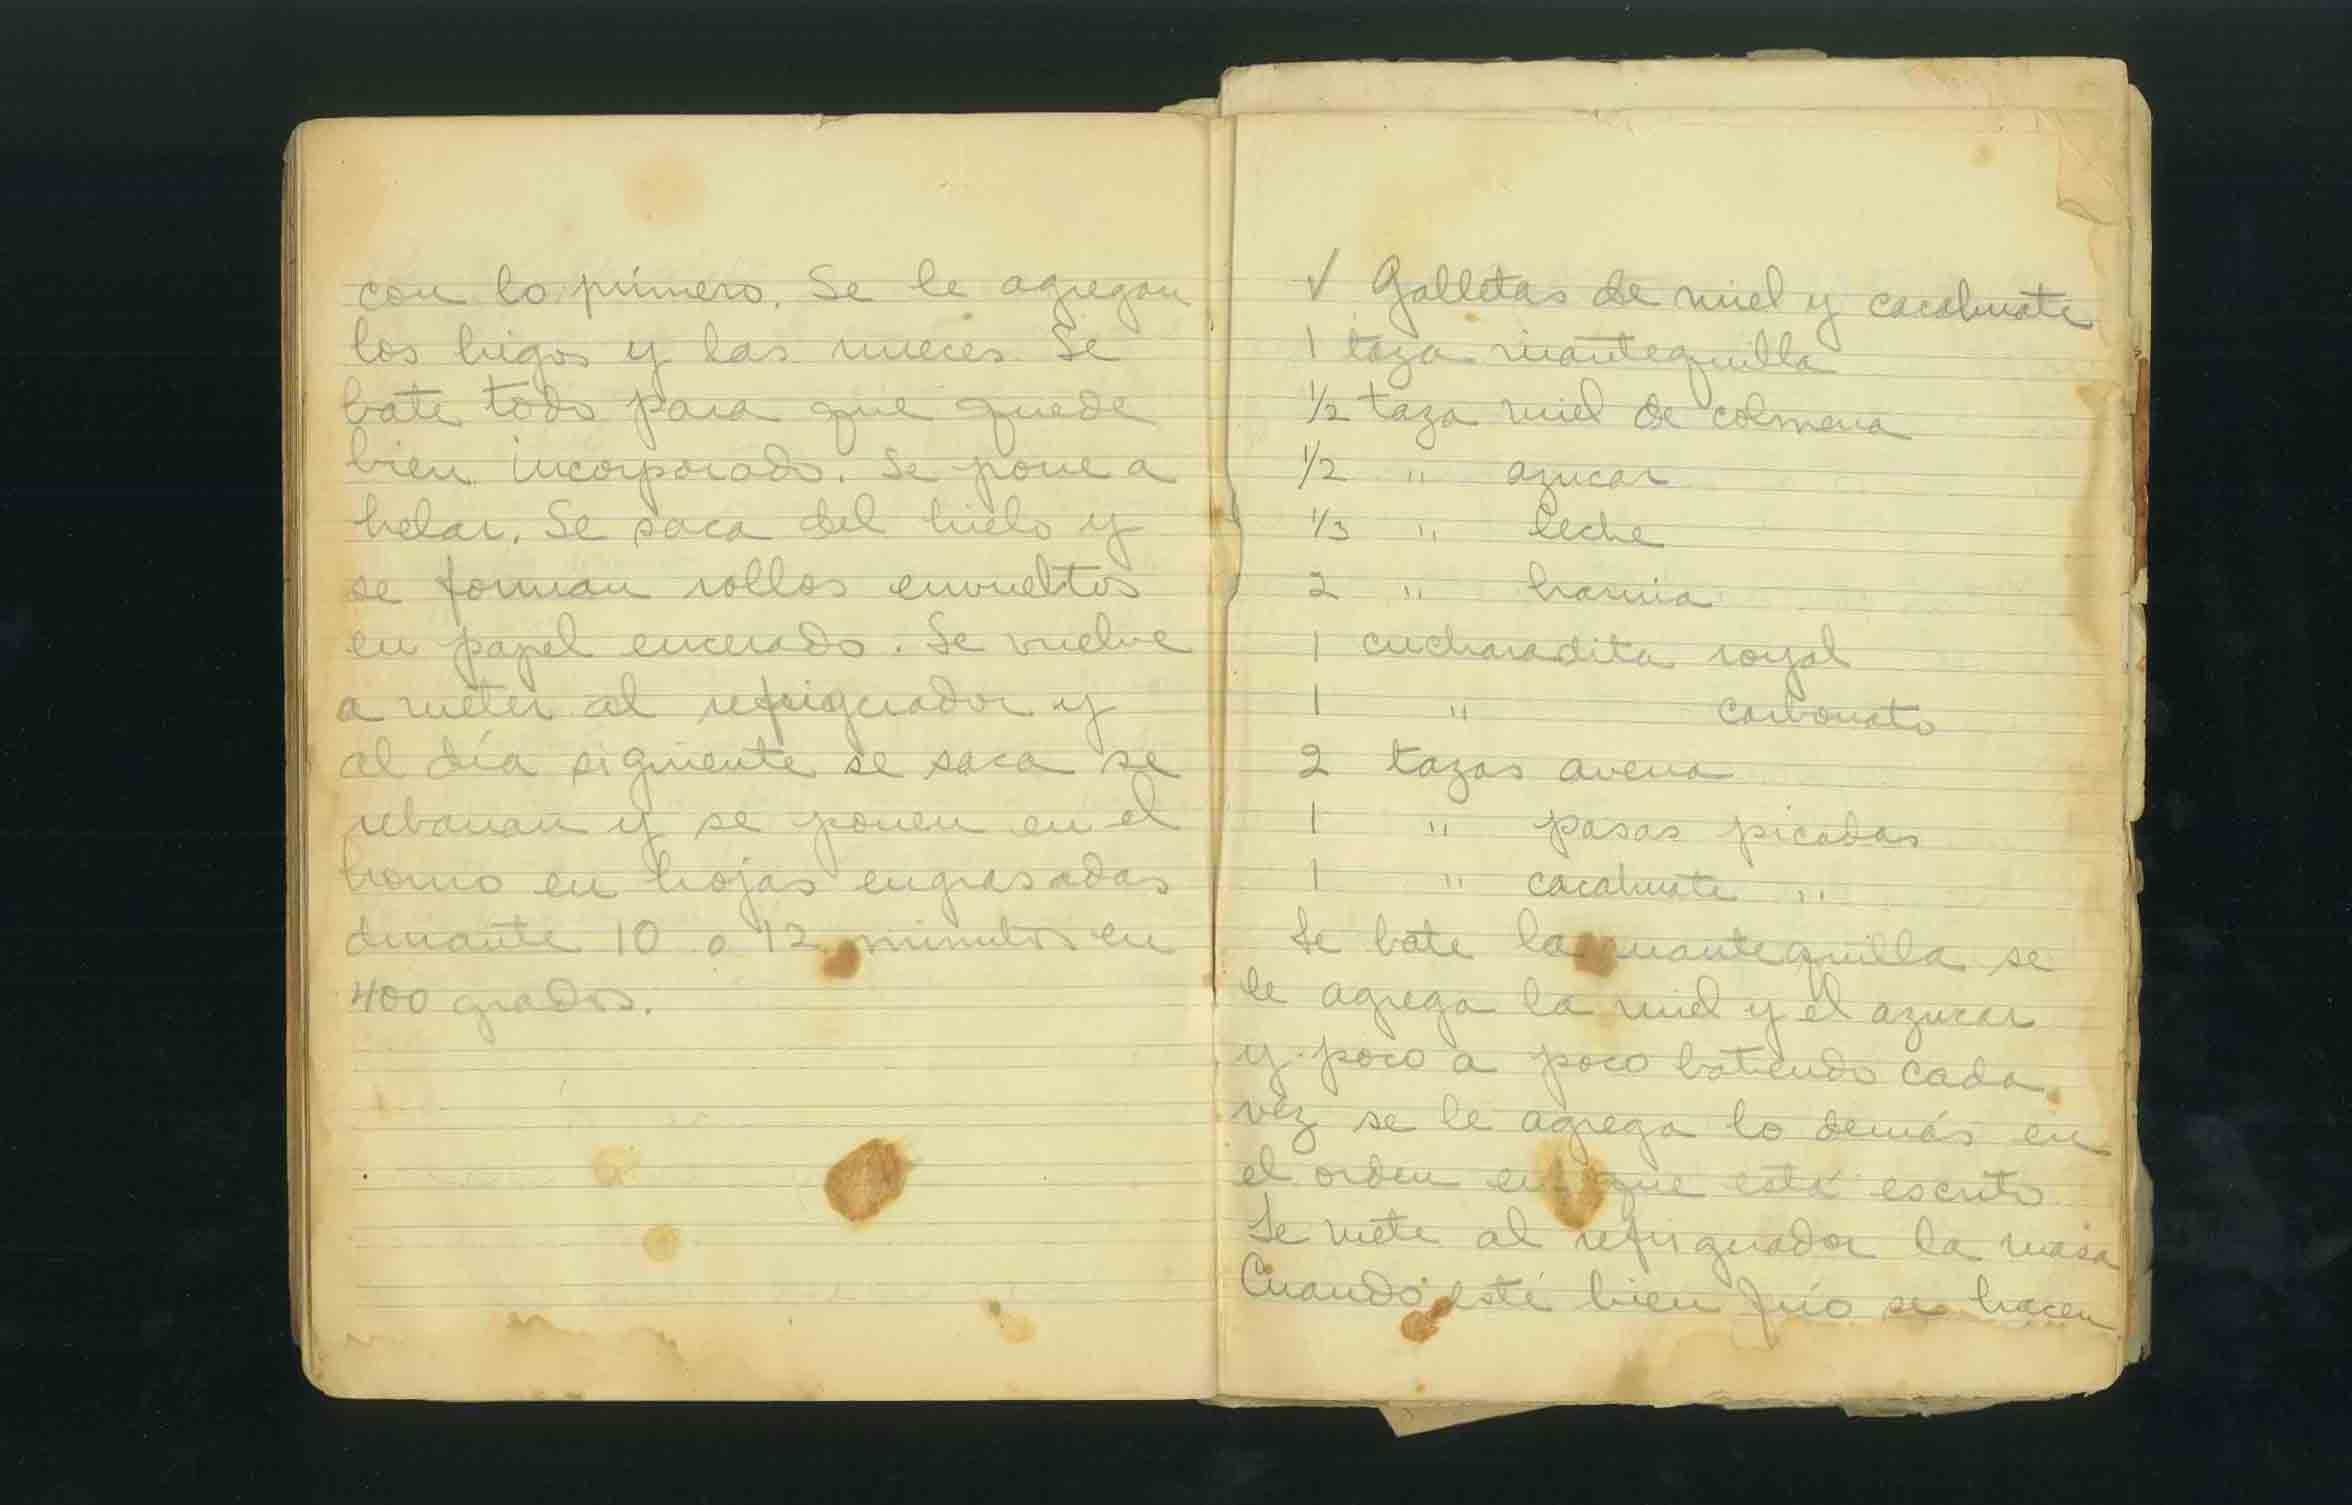 con lo primero. Se le agregan
los higos y las nueces Se
bate todo para que quede
bien incorporado. Se pone a
helar. Se saca del hielo y
se forman rollos envueltos
en papel encerado. Se vuelve
a meter al refrigerador y
al día siguiente se saca se
rebanan y se ponen en el
horno en hojas engrasadas
durante 10 o 12 minutos en
400 grados.
√ Galletas de miel y cacahuate
1 taza mantequilla
1/2 taza miel de colmena
1/2 " azucar
1/3 " leche
2 " harina
1 cucharadita royal
1 " carbonato
2 tazas avena
1 " pasas picadas
1 " cacahuate "
Se bate la mantequilla se
le agrega la miel y el azucar
y poco a poco batiendo cada
vez se le agrega lo demás en
el orden en que está escrito
Se mete al refrigerador la masa
Cuando esté bien frío se hacen